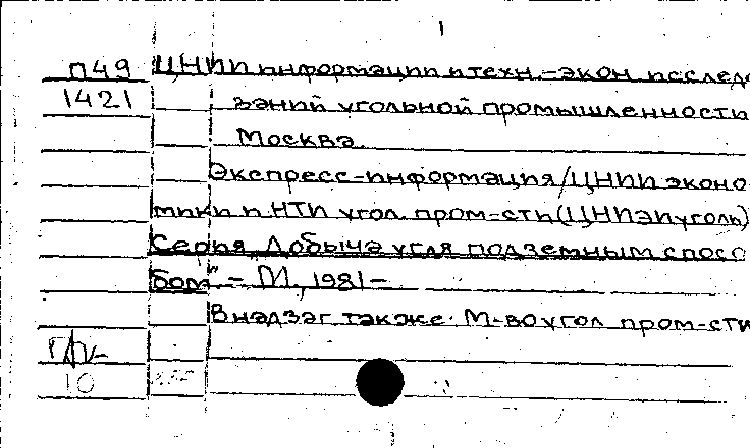 1
П49 ЦНИИ информации и техн.-экон. исследо
1421 ваний угольной промышленности
Москва.
Экспресс-информация/ЦНИИ эконо
мики и НТИ угол. пром-сти(ЦНИЭИуголь)
Серия "Добыча угля подземным спосо
бом" – М., 1981 –
В надзаг. также: М-во угол. пром-сти
10